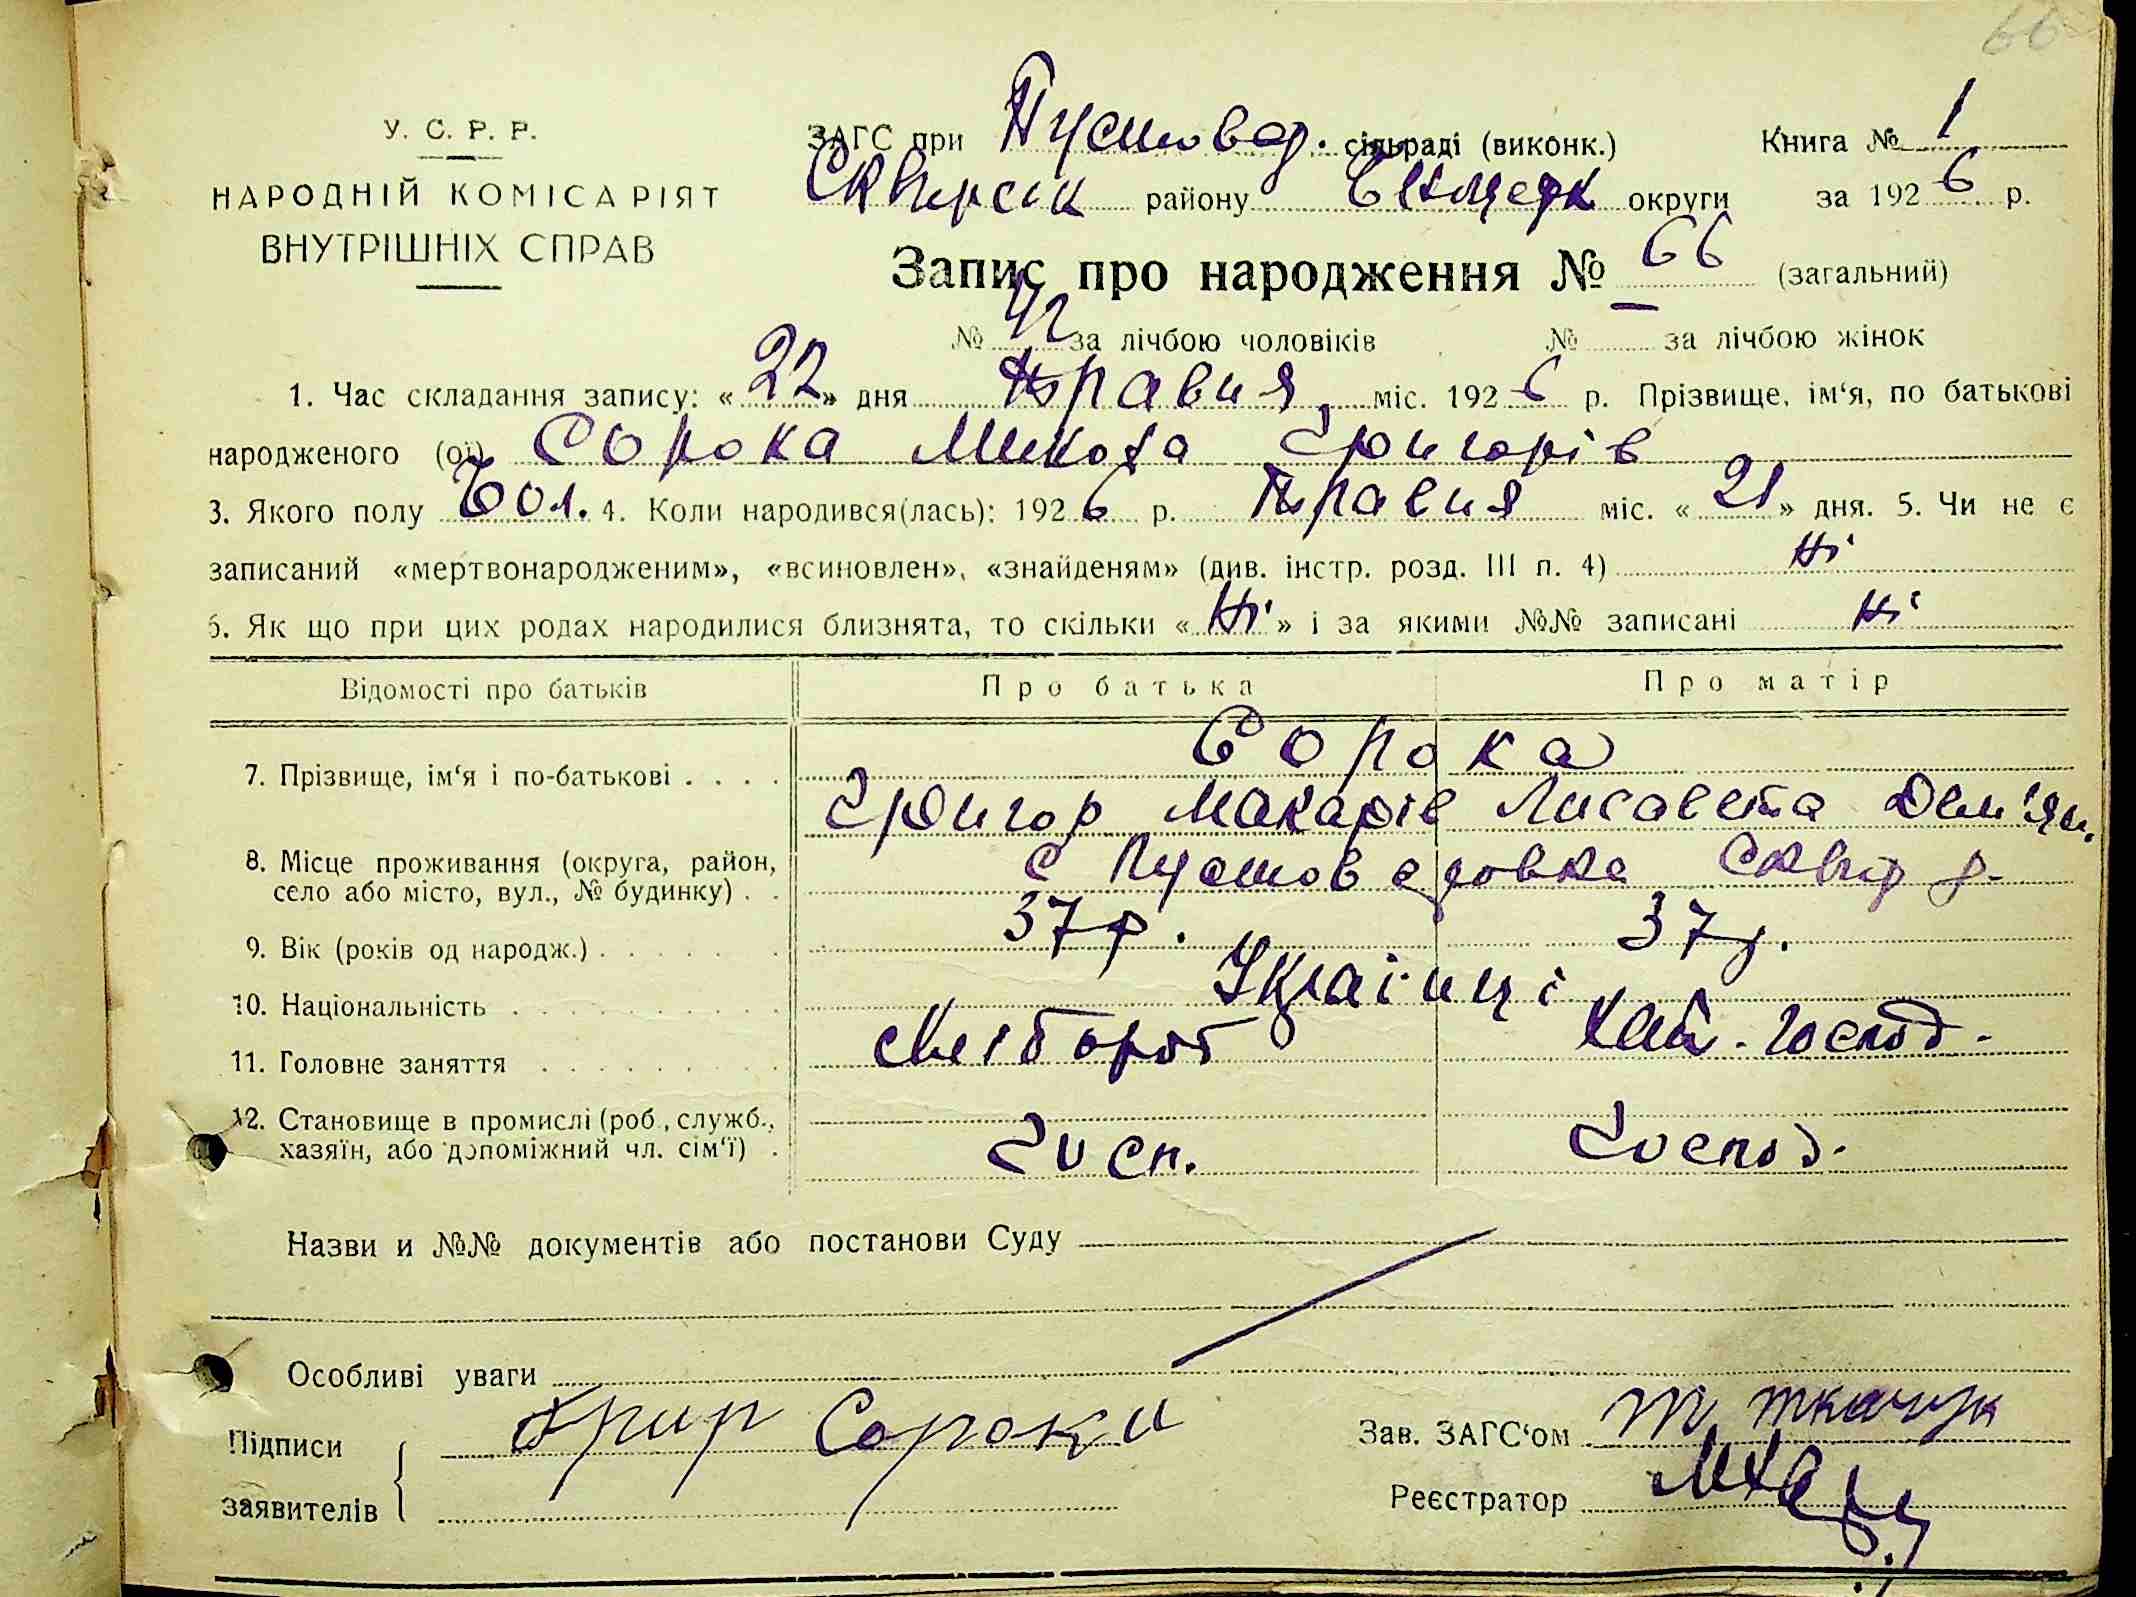 66
У. С. Р. Р.
НАРОДНІЙ КОМІСАРІЯТ
ВНУТРІШНІХ СПРАВ
ЗАГС при Пустовар. сільраді (виконк.) Книга № 1
Сквирськ району Білоцерк округи за 1926 р.
Запис про народження № 66 (загальний)
№ 42 за лічбою чоловіків № за лічбою жінок
1. Час складання запису: « 22 » дня травня міс. 1926 р. Прізвище, ім‘я, по батькові
народженого (ої) Сорока Микола Григорів
3. Якого полу Чол. 4. Коли народився(лась): 1926 р. травня міс. « 21 » дня. 5. Чи не є
записаний «мертвонародженим», «всиновлен», «знайденям» (див. інстр. розд. III п. 4) ні
6. Як що при цих родах народилися близнята, то скільки « ні » і за якими №№ записані ні
Відомості про батьків Про батька Про матір
7. Прізвище, ім‘я і по-батькові . . . . Сорока
Григор Макарів Лисавета Дем'ян.
8. Місце проживання (округа, район,
село або місто, вул., № будинку) . . с Пустоваровка Сквир р.
9. Вік (років од народж.) . . . . . . 37 р. 37 р.
10. Національність . . . . . . . . . . Українці
11. Головне заняття . . . . . . . . . Хлібороб Хат. господ.
12. Становище в промислі (роб., служб.,
хазяїн, або допоміжний чл. сім‘ї) . Госп. Господ.
Назви и №№ документів або постанови Суду
Особливі уваги
Підписи
заявителів
Григ Сорока
Зав. ЗАГС‘ом Т Ткачук
Реєстратор